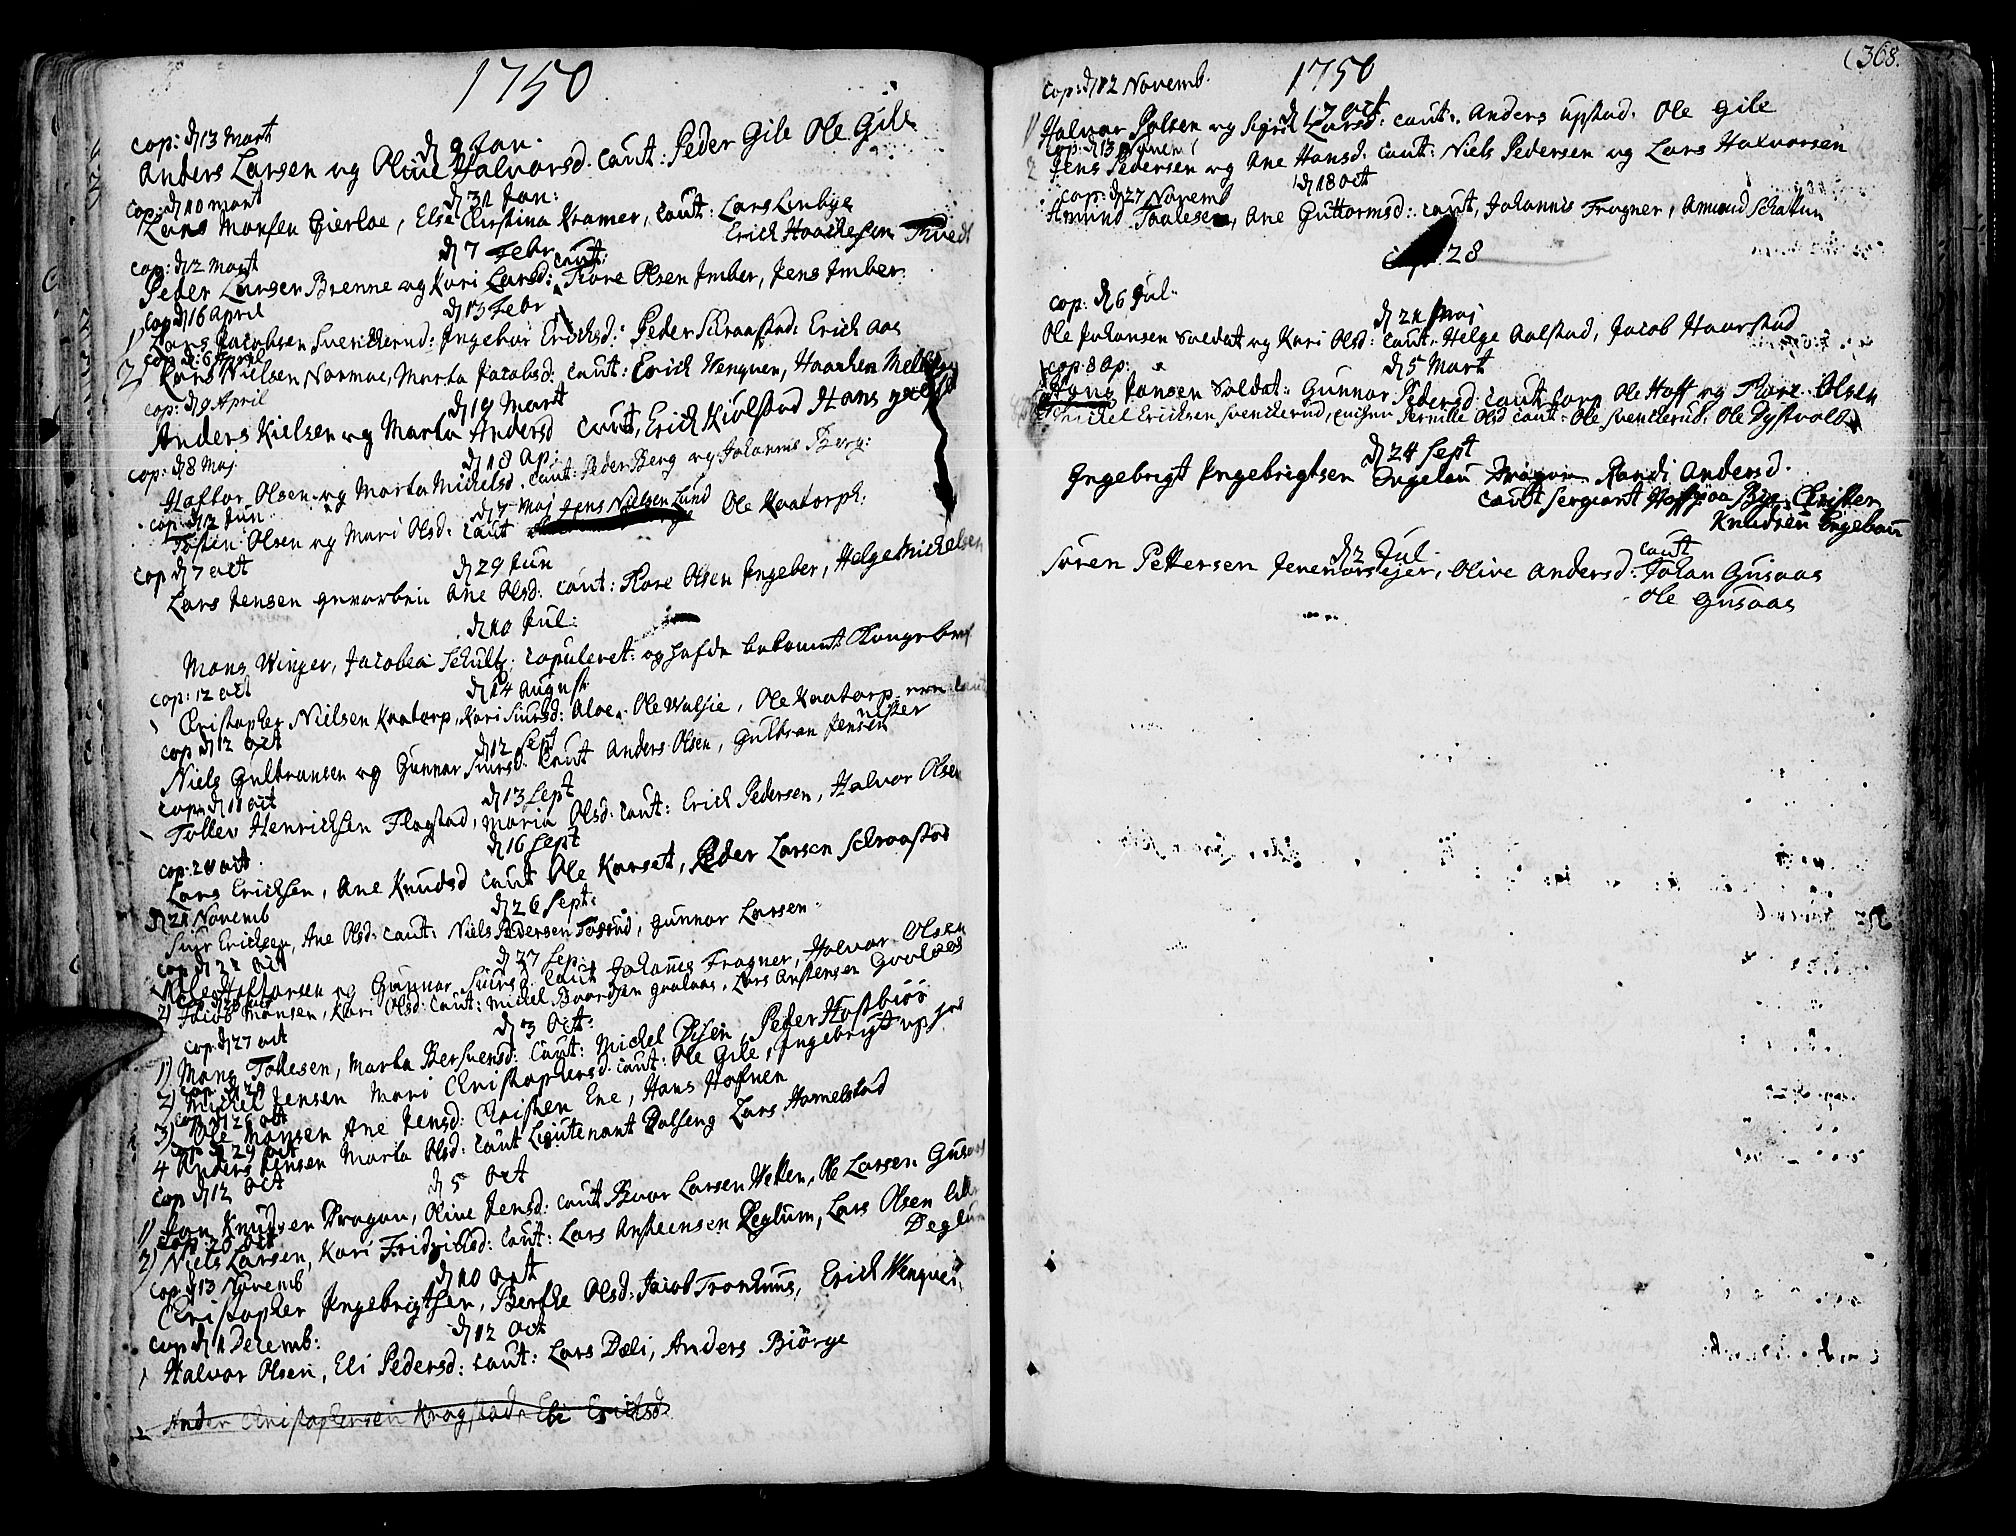 1750
cop: d 13 Mart
d 9 Jan.
Anders Larsen og Olive Halvorsd. caut: Peder Gile Ole Gile
cop: d 10 mart
d 31 Jan:
Lars Monsen Gierloe, Else Cirstina Kramer, caut: Lars Linbye
Erich Haachesen Tvedt
cop: d 2 Mart
d 7 Febr
caut:
Peder Larsen Brenne og Kari Larsd: Tore Olsen Imber, Jens Imber
cop d 16 April
d 13 Febr
1) Lars Jacobsen Svenkerud: Ingebor Erichsd: Peder Skraastad: Erich Aas
cop d: 6 April
2) Lars Nielsen Normoe, Marta Jacobsd: caut: Erich Wenguen, Haachen
cop: d 9 April
d 19 Mart
Anders Kielsen og Marta Andersd caut, Erich Kiølstad Hans
cop: d 8 Maj
d 18 Ap:
Haftor Olsen og Marta Michelsd. caut: Peder Berg og Johannis Berg:
cop: d 2 Jun
d 7 Maj Jens Nielsen Lund
Tosten Olsen og Mari Olsd: caut Ole Kaatorp:
cop d 7 oct
d 29 Jun
Lars Jensen gevorben Ane Olsd: caut: Tore Olsen Ingeber, Helge Michelsen
d 10 Jul:
Mons Winger, Jacobea Schultz; copuleret: og hafde bekommet Kongebref
cop: 12 oct
d 14 August
Christopher Nielsen Kaatorp, Kari Siursd: Aloe. Ole Walsie, Ole Kaatorp
cop d 12 oct
d 12 Sept
Niels Gulbransen og Gunnor Siursd. caut Anders Olsen, Gulbran Jensen
cop: d 11 oct
d 13 Sept
Tollev Henrichsen Flagstad, Maria Olsd. caut: Erich Pedersen, Halvor Olsen
cop: 20 oct
d 16 Sept
Lars Erichsen, Ane Knudsd caut Ole Korset, Peder Larsen Schraastad
d 21 Novemb
d 26 Sept:
Siur Erichsen, Ane Olsd: caut: Niels Pedersen Tosrud, Gunnar Larsen
cop d 22 oct
d 27 Sep.
Ole Haftorsen og Gunnor Siursd. caut Johannes Fragner, Halvor Olsen
2) Jacob Monsen, Kari Olsd: caut: Michel Baardsen Gaalaas, Lars Anstensen Gaalaas
cop: d 27 oct
d 3 Oct:
1) Mons Tollesen, Marta Bersvensd: caut: Michel Olsen, Peder Hostbiør
2) Michel Jensen Mari Christophersd. caut: Ole Gile, Ingebrigt
cop: d 26 oct
3) Ole Monsen Ane Jensd: Christen Ene, Hans Hofnen
cop d 29 oct
4 Anders Jensen Marta Olsd: caut Lieutenant Dalseng Lars Hamelstad
cop d 12 oct
d 5 Oct
1) Jon Knudsen Dragon, Olive Jensd: caut Boor Larsen Wetten, Ole Larsen
cop: 26 oct
2) Niels Larsen, Kari Fridrichsd: caut: Lars Ansteensen Deglum, Lars Olsen lille
Deglum
cop: d 13 Novemb
d 10 Oct
Christopher Ingebrigtsen, Berthe Olsd: Jacob Tronhuus, Erich Wenguen
cop d 1 Decemb:
d 12 Oct
1 Halvor Olsen, Eli Pedersd: caut: Lars Dæli, Anders Biørge
2 Ander Christophersen Kragstad, Eli Erichsd.
(368.
1750
cop: d 12 Novemb.
d 17 oct
1) Halvor Polsen og Sigrid Larsd: caut:. Anders Opstad. Ole Gile
cop: d 13 Novem
2 Jens Pedersen og Ane Hansd. caut: Niels Pedersen og Lars Halvorsen
cop: d 27 Novemb
d 18 oct
Amund Taalesen, Ane Guttormsd: caut, Johannis Fragner, Amund Schattum
28
cop: d 6 Jul:
d 21 Maj
Ole Johansen Soldat og Kari Olsd: caut: Helge Aalstad, Jacob Haarstad
cop 8 Ap:
d 5 Mart
Hans Jansen Soldat: Gunnor Pedersd. caut corp Ole Hoff og Tore Olsen
Michel Erichsen Svenkerud, Pernille Olsd caut: Ole Svenkerud, Ole Dystvold
d 24 Sept
Engebrigt Ingebrigtsen Engelau Dragon Randi Andersd.
caut Sergeant paa Bye, Christen
Knudsen Engelaun
d 2 Jul.
caut
Søren Pettersen, Olive Andersd: Johan Gusaas
Ole Gusaas